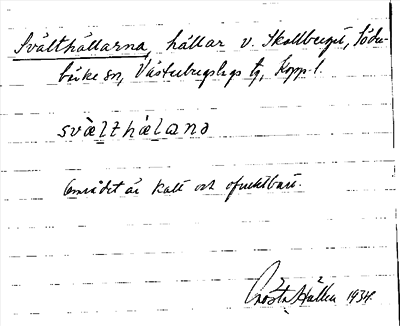 Svälthällarna, hällar v. Skallberget, Söder-
bärke sn, Västerbergslags tg, Kopp. l.
svælthælanɑ
Området är kalt och ofruktbart.
Gösta Hällen 1934.